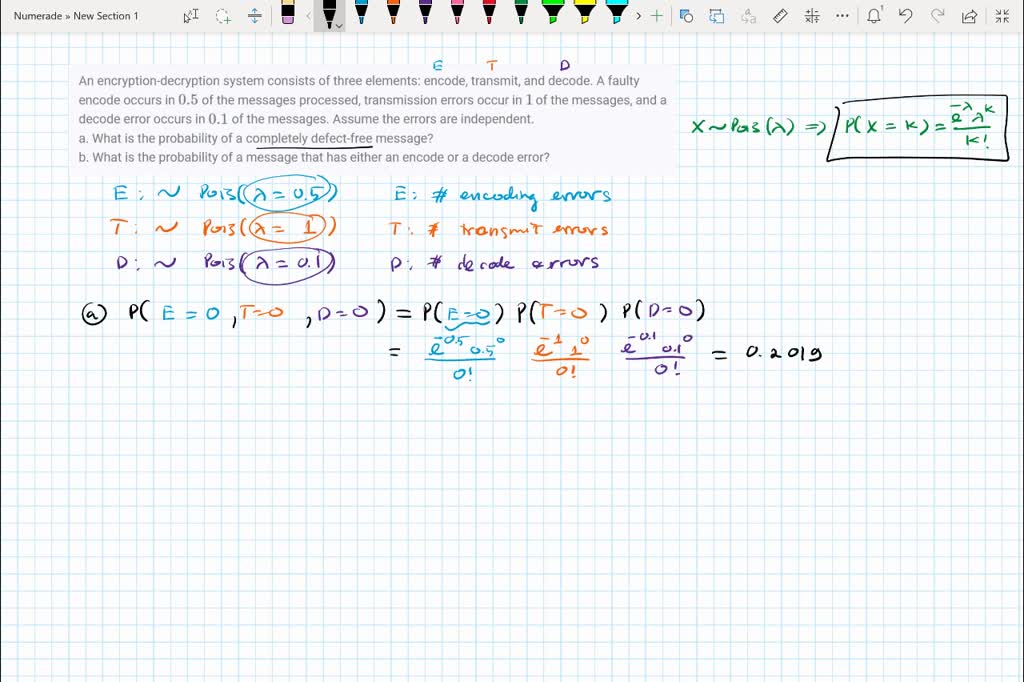 Numerade » New Section 1
E T D
An encryption-decryption system consists of three elements: encode, transmit, and decode. A faulty
encode occurs in 0.5 of the messages processed, transmission errors occur in 1 of the messages, and a
decode error occurs in 0.1 of the messages. Assume the errors are independent.
a. What is the probability of a completely defect-free message?
b. What is the probability of a message that has either an encode or a decode error?
X ~ Pois (λ) => P(X = K) = e^-λ λ^K / K!
E: ~ Pois(λ = 0.5) E: # encoding errors
T: ~ Pois(λ = 1) T: # transmit errors
D: ~ Pois(λ = 0.1) D: # decode errors
ⓐ P( E = 0 , T=0 , D=0 ) = P(E=0) P(T=0) P(D=0)
= e^-0.5 0.5^0 / 0! e^-1 1^0 / 0! e^-0.1 0.1^0 / 0! = 0.2019